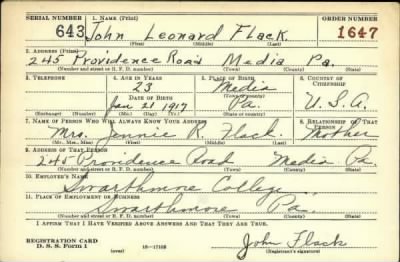 SERIAL NUMBER 1. NAME (Print) ORDER NUMBER
643 John Leonard Flack 1647
(First) (Middle) (Last)
2. ADDRESS (Print)
245 Providence Road Media Pa.
(Number and street or R. F. D. number) (Town) (County) (State)
3. TELEPHONE 4. AGE IN YEARS 5. PLACE OF BIRTH 6. COUNTRY OF CITIZENSHIP
23 Media
DATE OF BIRTH (Town or county)
Jan 21 1917 Pa. U.S.A.
(Exchange) (Number) (Mo.) (Day) (Yr.) (State or country)
7. NAME OF PERSON WHO WILL ALWAYS KNOW YOUR ADDRESS 8. RELATIONSHIP OF THAT PERSON
Mrs. Jennie R. Flack Mother
(Mr., Mrs., Miss) (First) (Middle) (Last)
9. ADDRESS OF THAT PERSON
245 Providence Road Media Pa.
(Number and street or R. F. D. number) (Town) (County) (State)
10. EMPLOYER'S NAME
Swarthmore College
11. PLACE OF EMPLOYMENT OR BUSINESS
Swarthmore Pa.
(Number and street or R. F. D. number) (Town) (County) (State)
I AFFIRM THAT I HAVE VERIFIED ABOVE ANSWERS AND THAT THEY ARE TRUE.
REGISTRATION CARD
D. S. S. Form 1 (over) 16-17105 John Flack
(Registrant's signature)